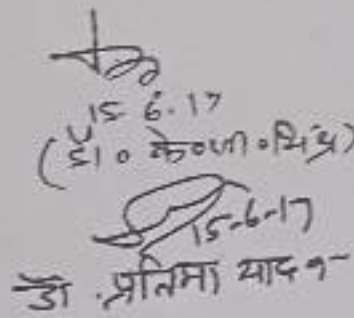 15.6.17
(डॉ० के०जी०सिंह)
15-6-17
डॉ. प्रतिमा यादव